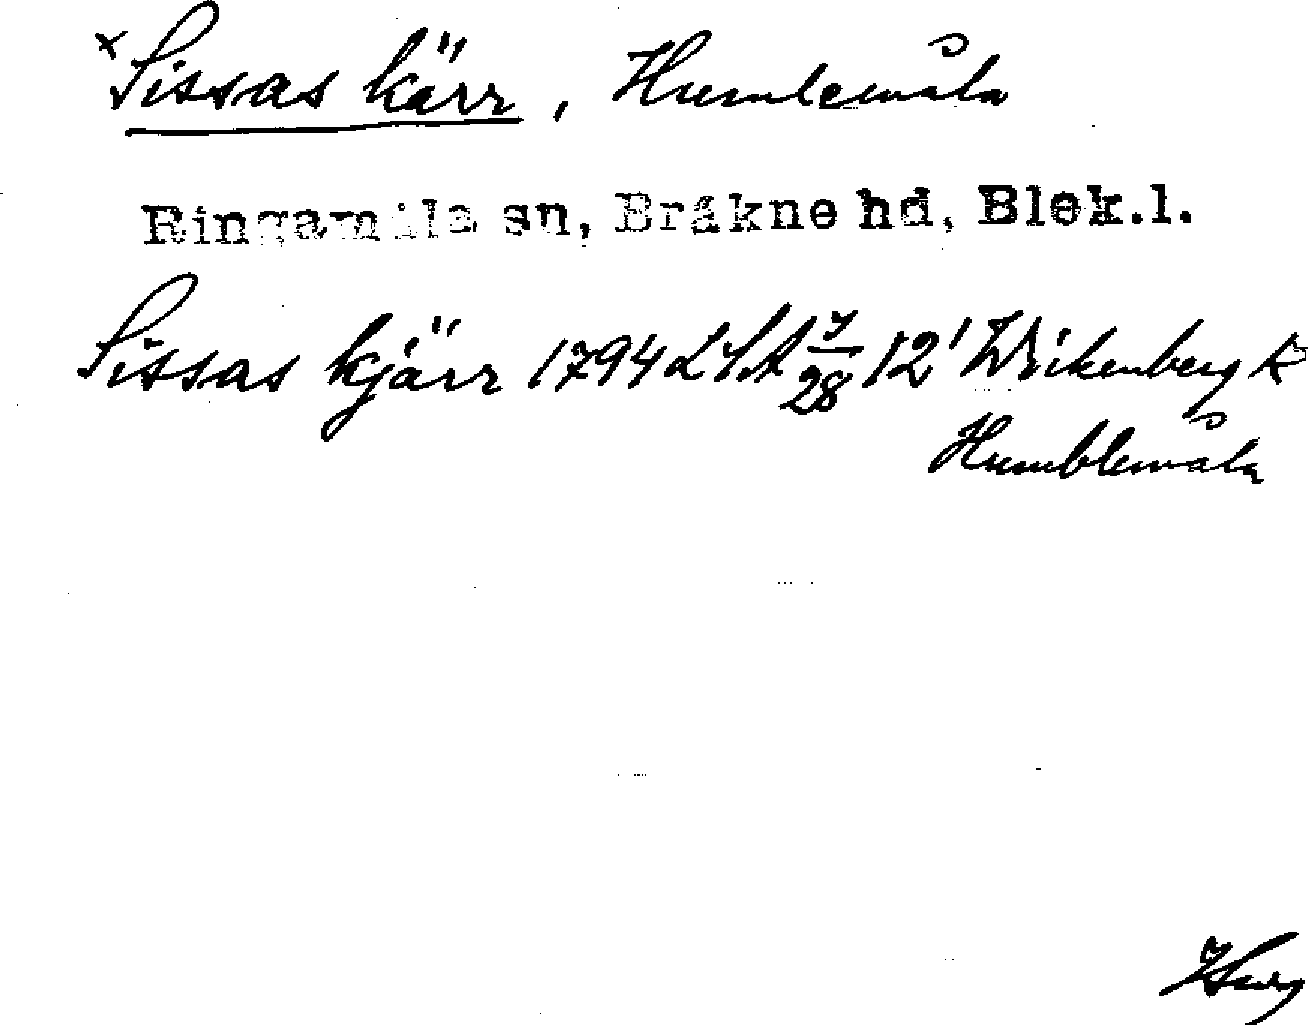 × Sissas kärr, Humlemåla
Ringamåla sn, Bräkne hd, Blek.l.
Sissas kjärr 1794 LSA 7/28 12' Wikenberg k
Humblemåla